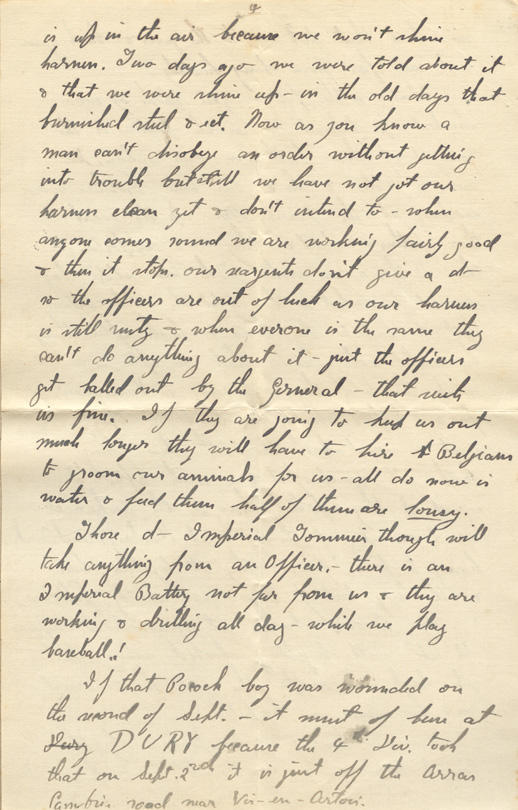 is up in the air because we won't shine
harness. Two days ago we were told about it
& that we were shine up - in the old days that
burnished steel & ect. Now as you know a
man can't disobeye an order without getting
into trouble but still we have not got our
harness clean yet & don't intend to - when
anyone comes round we are working fairly good
& then it stops. our sargents don't give a d-
so the officers are out of luck as our harness
is still rusty & when everone is the same they
can't do anything about it - just the officers
get balled out by the General - that suits
us fine. If they are going to keep us out
much longer they will have to hire Belgians
to groom our animals for us - all do now is
water & feed them half of them are lousy.
Those d- Imperial Tommies though will
take anything from an Officer. - there is an
Imperial Battery not far from us & they are
working & drilling all day - while we play
baseball.!
If that Pocock boy was wounded on
the second of Sept. - it must of been at
Dury DURY because the 4th Div. took
that on Sept. 2nd it is just off the Arras
Cambrai road near Vis-en-Artois.